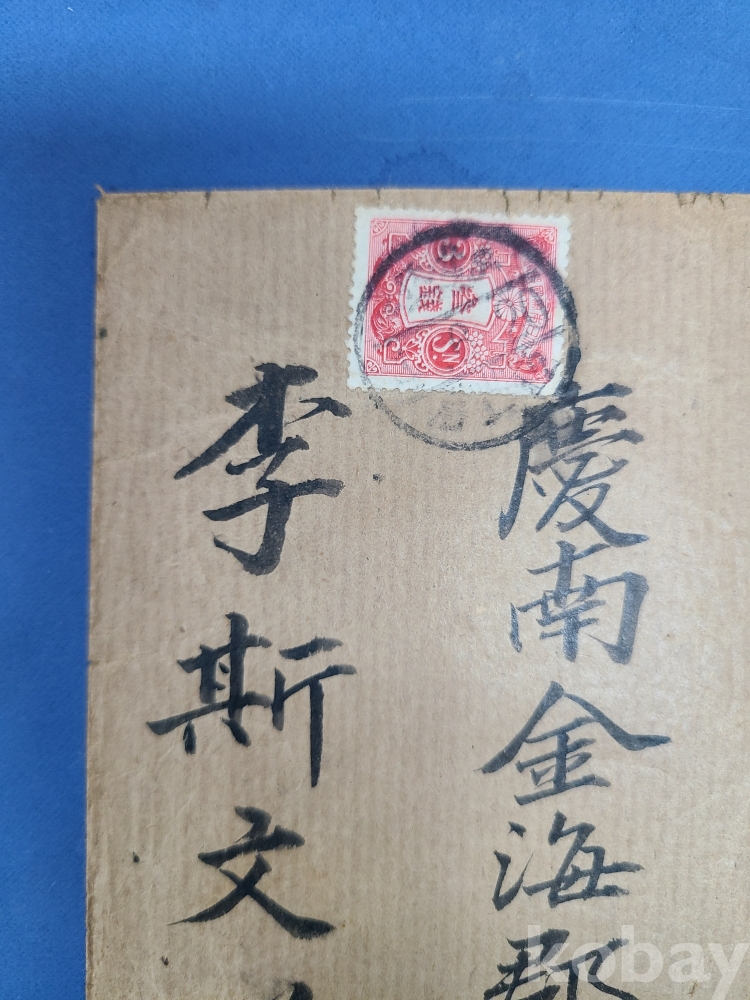 慶南金海郡
李斯文
3
参錢
SN
kobay